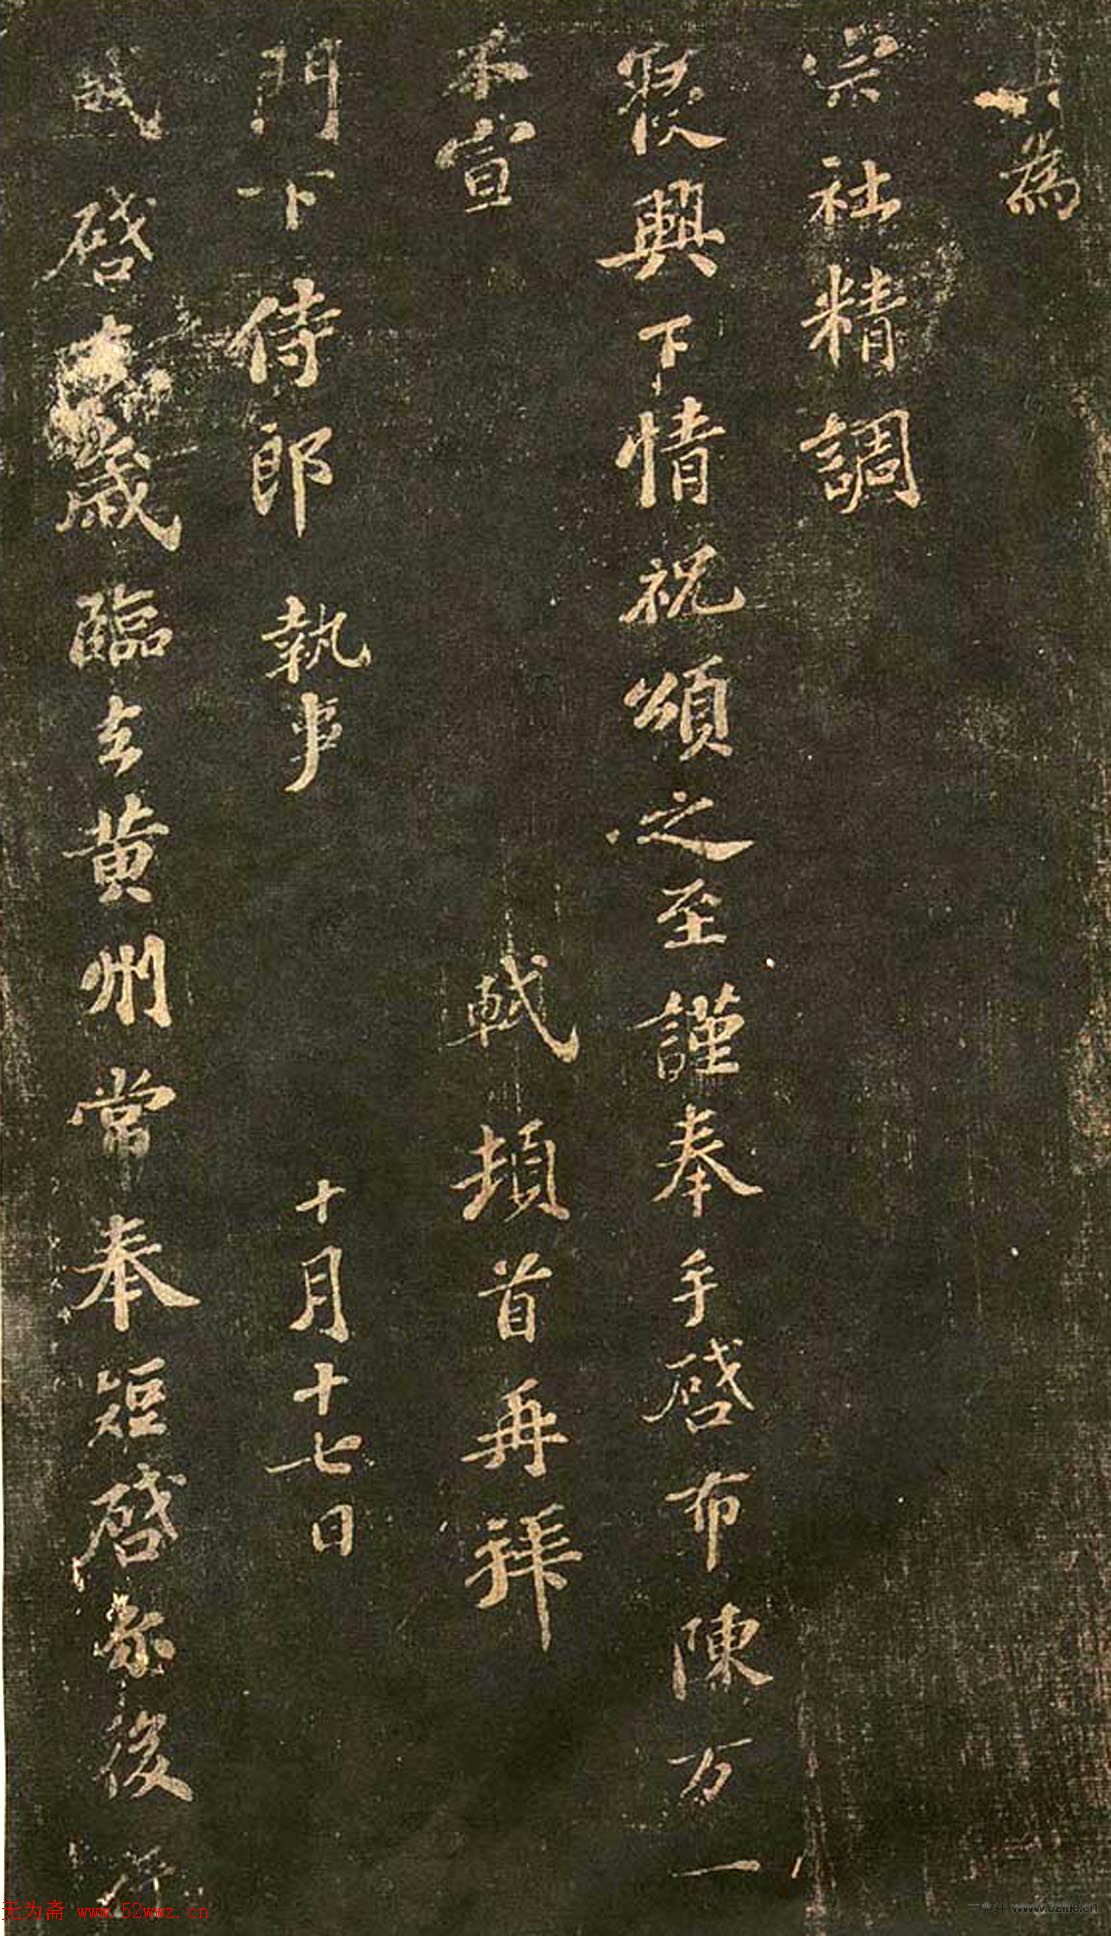 為
宗社精調
寢興下情祝頌之至謹奉手啓布陳万一
不宣
軾頓首再拜
門下侍郎 執事
十月十七日
軾啓 歲臨去黄州常奉短啓爾後行
无为斋 www.52wwz.cn